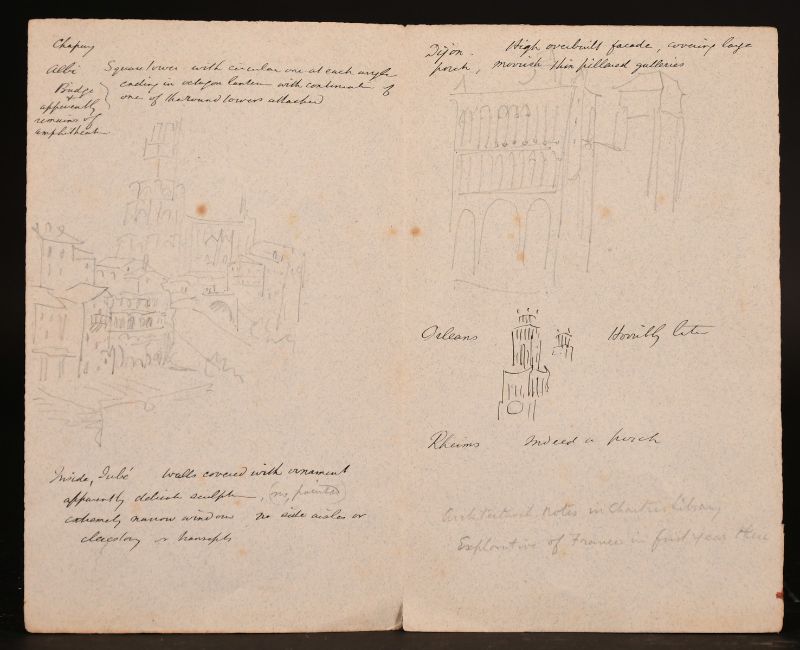 Chapuy
Albi Square tower with circular one at each angle
ending in octagon lantern with continuent of
one of the round towers attached
Bridge
+
apparently
remains of
amphitheatre
Inside, Jubé walls covered with ornament
apparently delicate sculpture, (no, painted)
extremely narrow windows no side aisles or
clerestory or transepts
Dijon. High overbuilt facade, covering large
porch, moorish thin pillared galleries
Orleans Horribly late
Rheims Indeed a porch
Architectural Notes in Chartres Library
Explorative of France in first year there